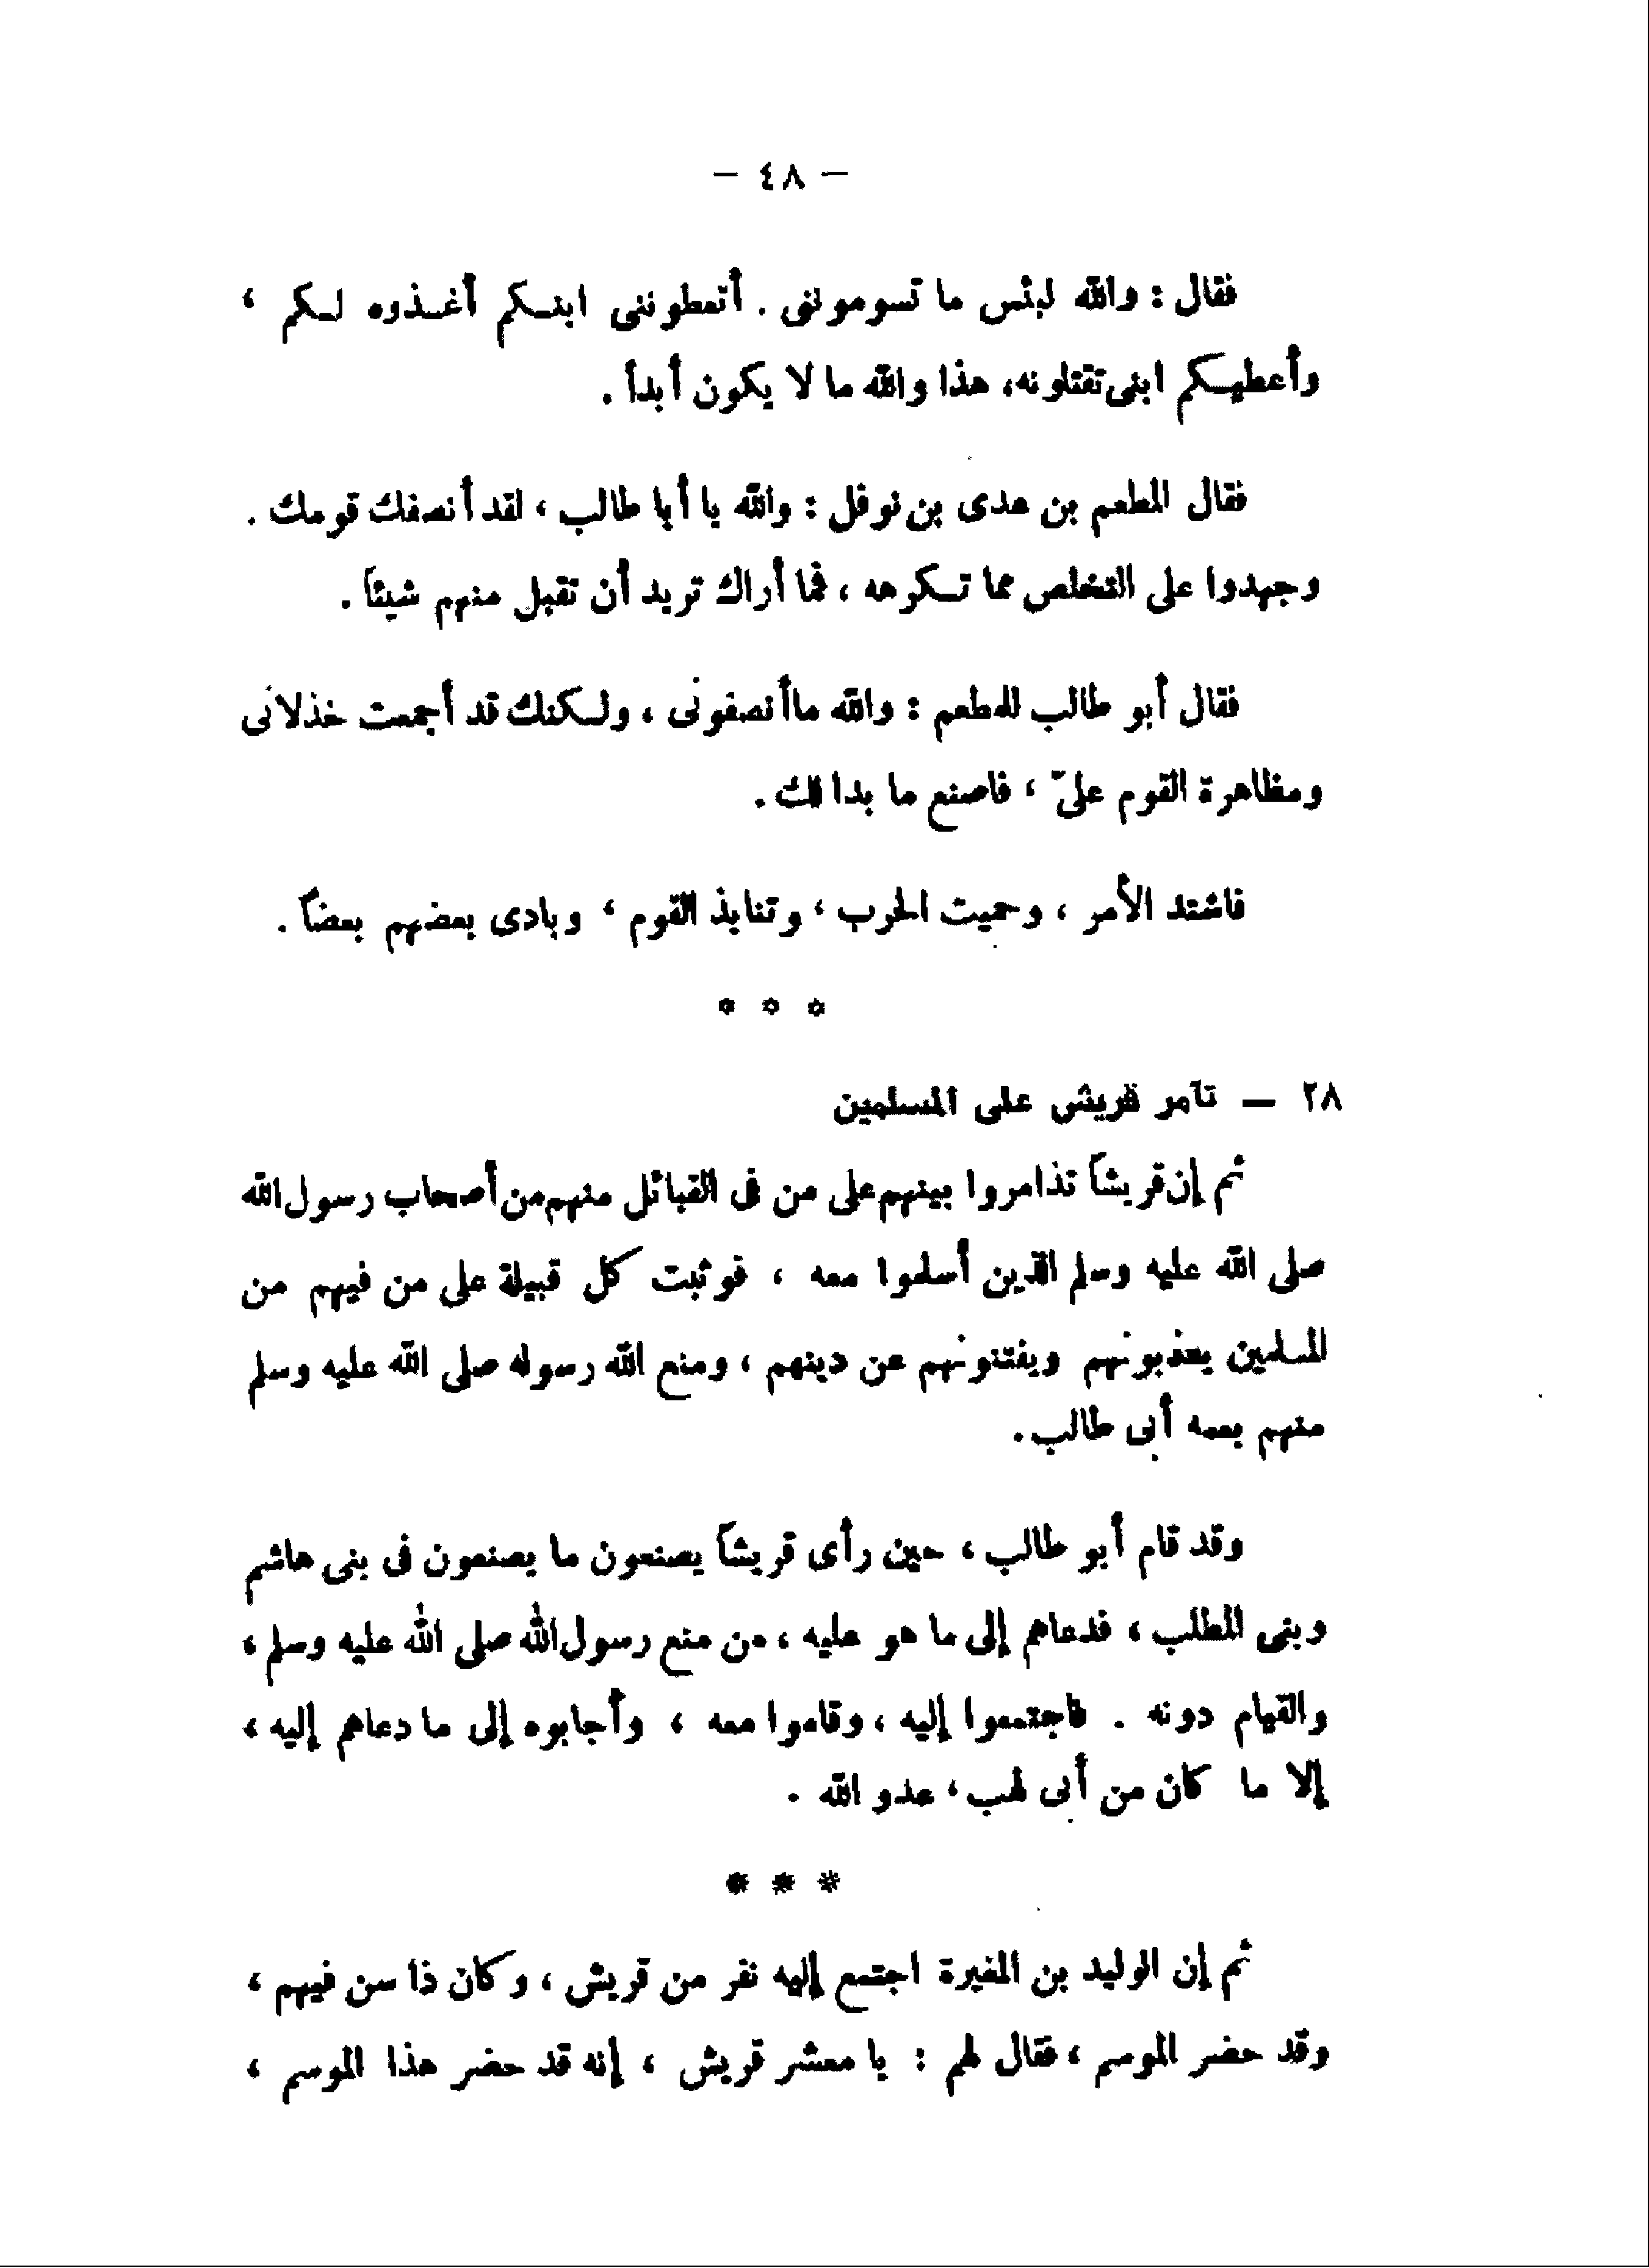 — ٤٨ —
فقال : والله لبئس ما تسوموننى . أتعطوننى ابنكم أغذوه لكم ،
وأعطيكم ابنى تقتلونه، هذا والله ما لا يكون أبداً .
فقال المطعم بن عدى بن نوفل : والله يا أبا طالب ، لقد أنصفك قومك .
وجهدوا على التخلص مما تكرهه ، فما أراك تريد أن تقبل منهم شيئاً .
فقال أبو طالب للمطعم : والله ما أنصفونى ، ولكنك قد أجمعت خذلانى
ومظاهرة القوم علىّ ، فاصنع ما بدا لك .
فاشتد الأمر ، وحميت الحرب ، وتنابذ القوم ، وبادى بعضهم بعضاً .
* * *
٢٨ — تآمر قريش على المسلمين
ثم إن قريشاً تذامروا بينهم على من فى القبائل منهم من أصحاب رسول الله
صلى الله عليه وسلم الذين أسلموا معه ، فوثبت كل قبيلة على من فيهم من
المسلمين يعذبونهم ويفتنونهم عن دينهم ، ومنع الله رسوله صلى الله عليه وسلم
منهم بعمه أبى طالب .
وقد قام أبو طالب ، حين رأى قريشاً يصنعون ما يصنعون فى بنى هاشم
وبنى المطلب ، فدعاهم إلى ما هو عليه ، من منع رسول الله صلى الله عليه وسلم ،
والقيام دونه . فاجتمعوا إليه ، وقاموا معه ، وأجابوه إلى ما دعاهم إليه ،
إلا ما كان من أبى لهب ، عدو الله .
* * *
ثم إن الوليد بن المغيرة اجتمع إليه نفر من قريش ، وكان ذا سن فيهم ،
وقد حضر الموسم ، فقال لهم : يا معشر قريش ، إنه قد حضر هذا الموسم ،